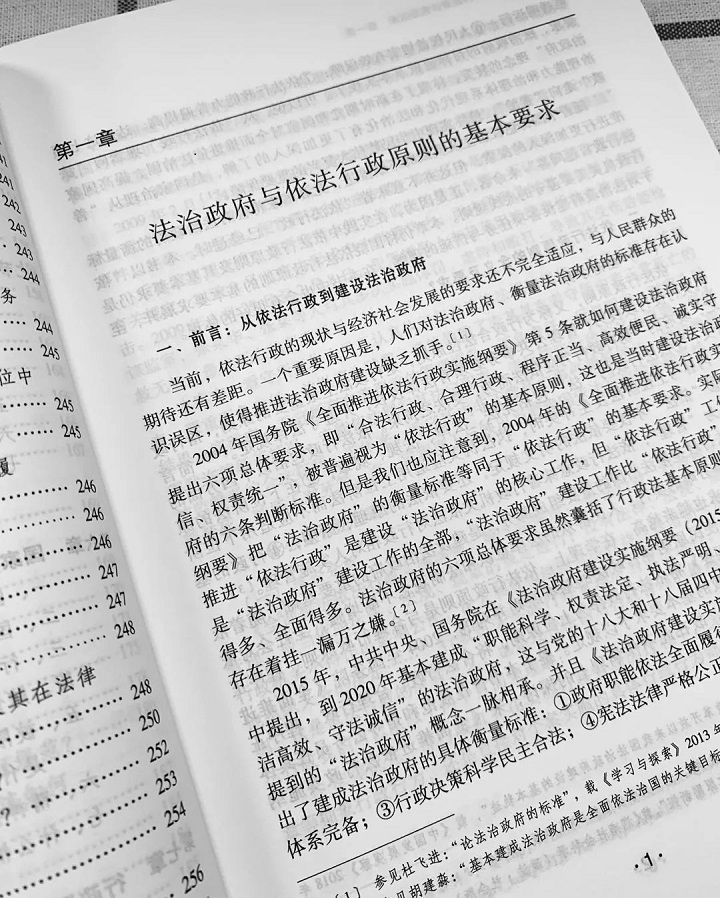 241
241
242
243
243
244
务
244
245
位中
245
245
履
246
246
246
247
247
248
其在法律
248
250
252
253
254
256
第一章
法治政府与依法行政原则的基本要求
一、前言：从依法行政到建设法治政府
当前，依法行政的现状与经济社会发展的要求还不完全适应，与人民群众的
期待还有差距。一个重要原因是，人们对法治政府、衡量法治政府的标准存在认
识误区，使得推进法治政府建设缺乏抓手。〔1〕
2004年国务院《全面推进依法行政实施纲要》第5条就如何建设法治政府
提出六项总体要求，即“合法行政、合理行政、程序正当、高效便民、诚实守
信、权责统一”，被普遍视为“依法行政”的基本原则，这也是当时建设法治政
府的六条判断标准。但是我们也应注意到，2004年的《全面推进依法行政实
纲要》把“法治政府”的衡量标准等同于“依法行政”的基本要求。实际
推进“依法行政”是建设“法治政府”的核心工作，但“依法行政”工
是“法治政府”建设工作的全部，“法治政府”建设工作比“依法行政”
得多、全面得多。法治政府的六项总体要求虽然囊括了行政法基本原则
存在着挂一漏万之嫌。〔2〕
2015年，中共中央、国务院在《法治政府建设实施纲要（2015
中提出，到2020年基本建成“职能科学、权责法定、执法严明、
洁高效、守法诚信”的法治政府，这与党的十八大和十八届四中
提到的“法治政府”概念一脉相承。并且《法治政府建设实
出了建成法治政府的具体衡量标准：①政府职能依法全面履
体系完备；③行政决策科学民主合法；④宪法法律严格公正
〔1〕 参见杜飞进：“论法治政府的标准”，载《学习与探索》2013年
见胡建淼：“基本建成法治政府是全面依法治国的关键目标
·1·